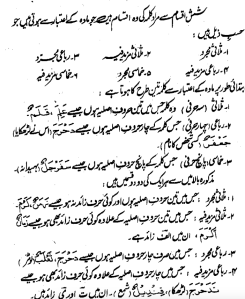 شش اقسام سے مراد کلمہ کی وہ اقسام ہیں جو مادہ کے اعتبار سے ہوتی ہیں جو
حسب ذیل ہیں:
۱- ثلاثی مجرد ۲- ثلاثی مزید فیہ ۳- رباعی مجرد
۴- رباعی مزید فیہ ۵- خماسی مجرد ۶- خماسی مزید فیہ
بنیادی طور پر مادہ کے اعتبار سے کلمہ تین طرح کا ہوتا ہے:
۱- ثلاثی (سہ حرفی): وہ کلمہ جس میں تین حروف اصلیہ ہوں جیسے عَلِمَ، قَلَمٌ۔
۲- رباعی (چہار حرفی): جس کلمہ کے چار حروف اصلیہ ہوں جیسے دَحْرَجَ (اس نے لڑھکایا)
جَعْفَرٌ (شخص کا نام)۔
۳- خماسی (پانچ حرفی): جس کلمہ کے پانچ حروف اصلیہ ہوں جیسے سَفَرْجَلٌ (بہی دانہ)۔
مذکورہ بالا میں سے ہر ایک کی دو دو قسمیں ہیں:
۱- ثلاثی مجرد: جس میں تین حروف اصلیہ ہوں اور کوئی حرف زائد نہ ہو جیسے
۲- ثلاثی مزید فیہ: جس میں تین حروف اصلیہ کے علاوہ کوئی حرف زائد بھی ہو جیسے
اَكْرَمَ: ان میں الف زائد ہے۔
۳- رباعی مجرد: جس میں صرف چار حروف اصلیہ ہوں جیسے دَحْرَجَ،
۴- رباعی مزید فیہ: جس میں چار حروف اصلیہ کے علاوہ کوئی حرف زائد بھی ہو جیسے
تَدَحْرَجَ (لڑھکا) قِنْدِيْلٌ (شمع)۔ ان میں ت اور ی زائد ہیں۔